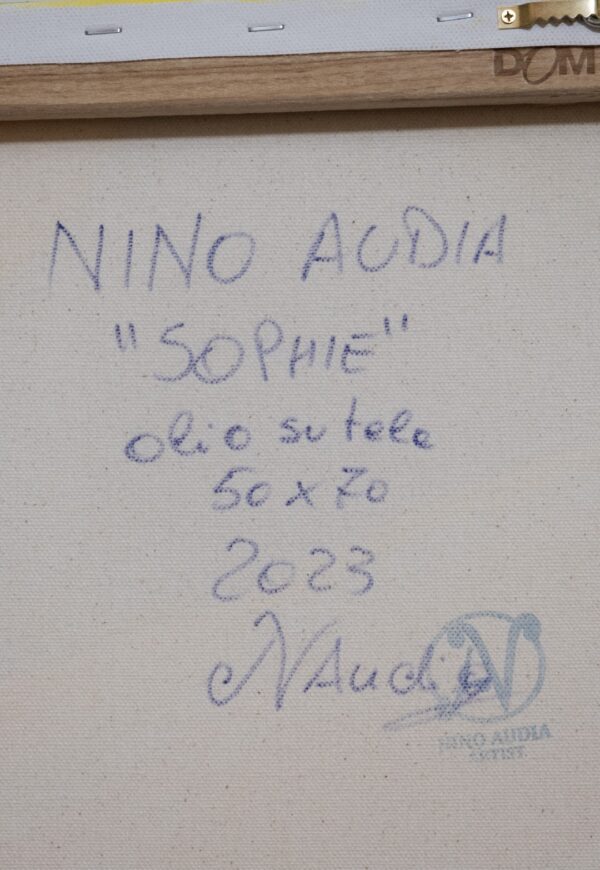 DOM
NINO AUDIA
"SOPHIE"
olio su tela
50 x 70
2023
NAudia
NINO AUDIA
ARTIST